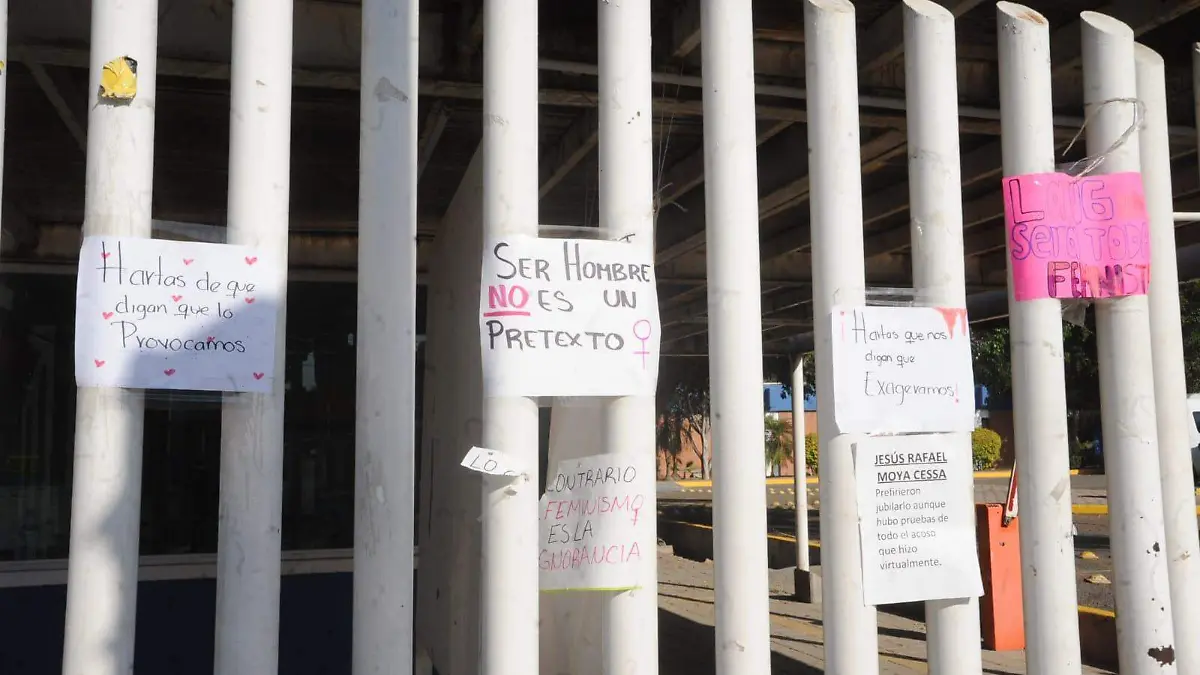 Hartas de que
digan que lo
Provocamos
SER HOMBRE
NO ES UN
PRETEXTO
LO
CONTRARIO
FEMINISMO
ES LA
IGNORANCIA
¡Hartas que nos
digan que
Exageramos!
JESÚS RAFAEL
MOYA CESSA
Prefirieron
jubilarlo aunque
hubo pruebas de
todo el acoso
que hizo
virtualmente.
FEMINIST